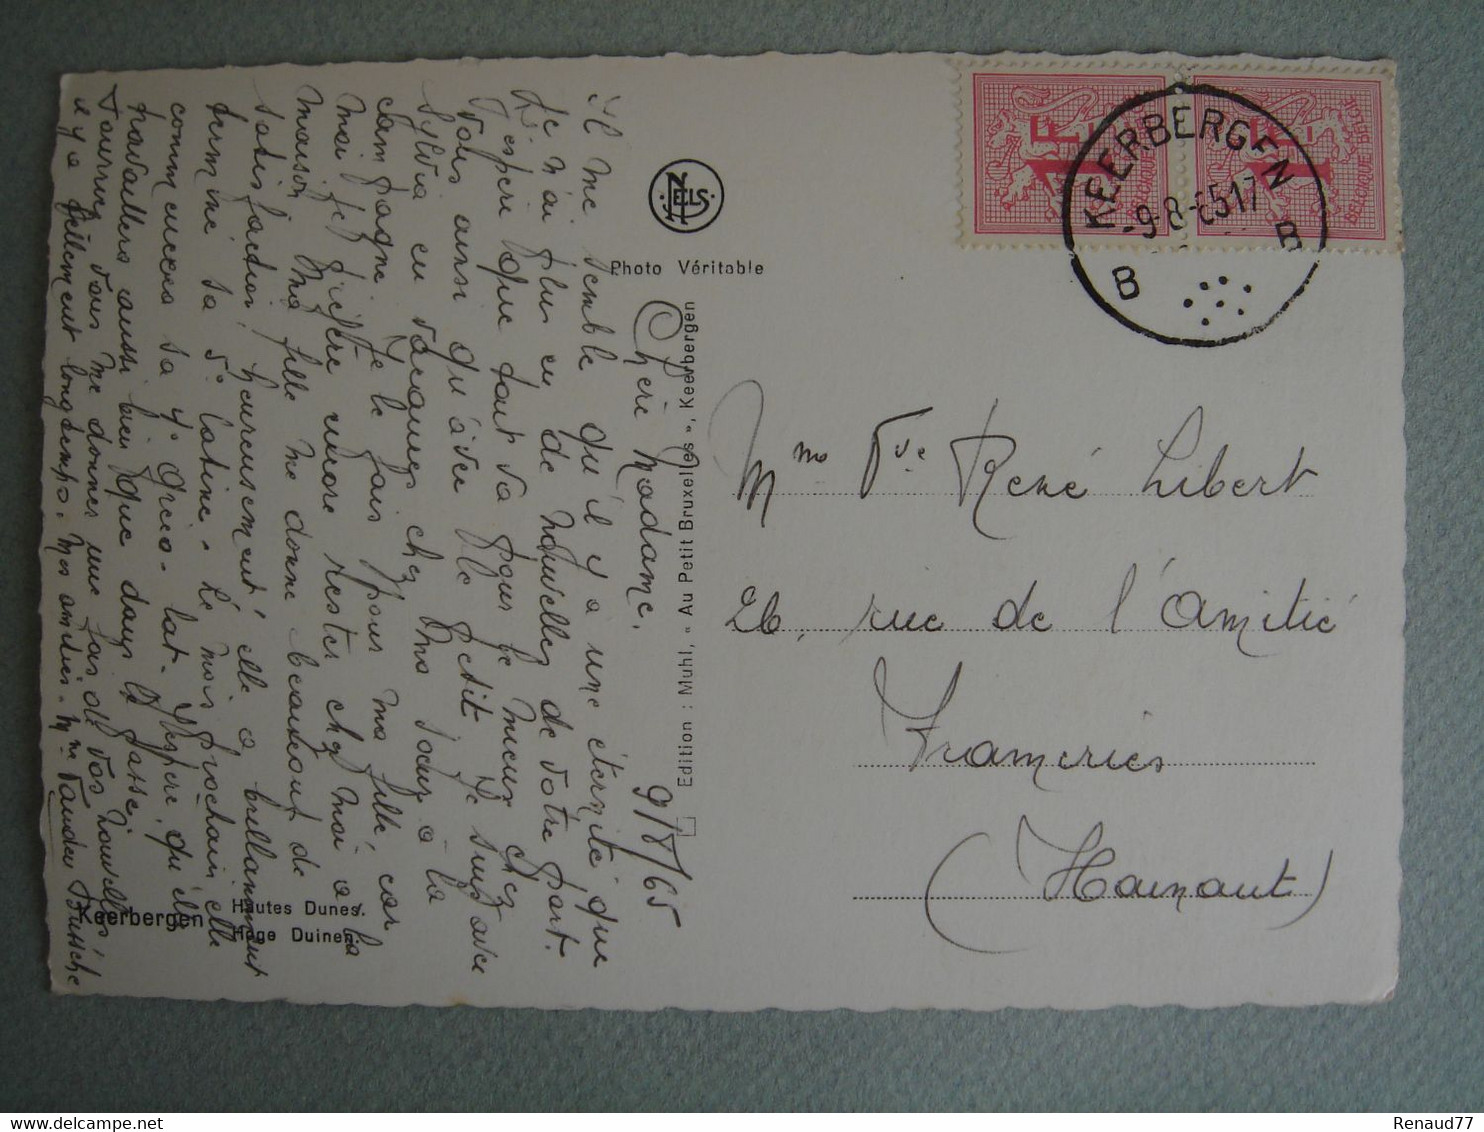 9/8/65
Chère Madame,
Il me semble qu'il y a une éternité que
je n'ai plus eu de nouvelles de votre part.
J'espère que tout va pour le mieux chez
vous ainsi qu'avec le petit. Je suis avec
Sylvia en vacances chez ma soeur à la
campagne. Je le fais pour ma fille car
moi je préfère encore rester chez moi à la
maison. Ma fille me donne beaucoup de
satisfaction, heureusement! elle a brillamment
terminé sa 5° latine. Le mois prochain elle
commencera sa 4° gréco-lat. J'espère, qu'elle
travaillera aussi bien que dans le passé.
Pourriez vous me donner une fois de vos nouvelles!
il y a tellement longtemps. Mes amitiés. Mme Vanden Bussche
Keerbergen
Hautes Dunes.
Hoge Duinen.
NELS
Photo Véritable
Edition : Muhl, « Au Petit Bruxelles », Keerbergen
1F
BELGIQUE BELGIË
1F
BELGIQUE BELGIË
KEERBERGEN
-9-8-65 17
B B
Mme Vve René Libert
26, rue de l'Amitié
Frameries
(Hainaut)
Renaud77